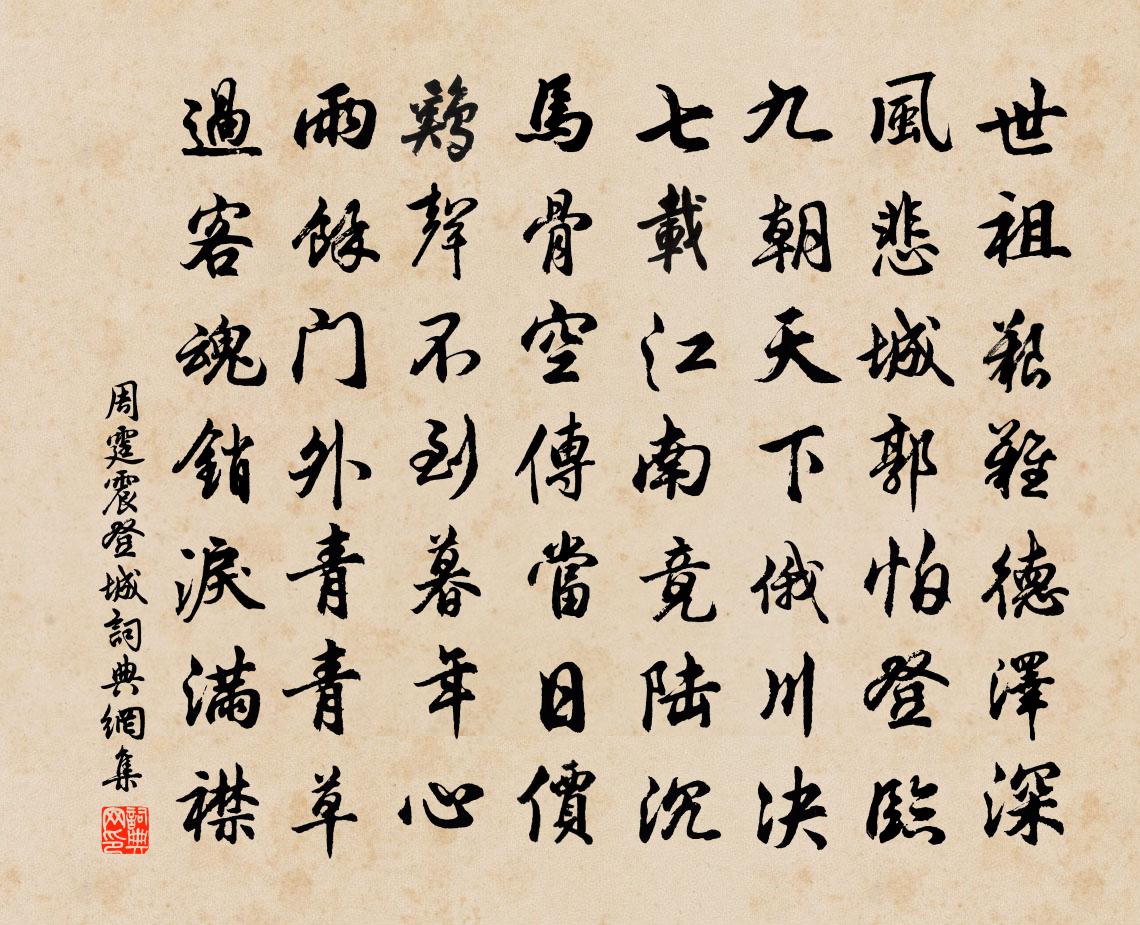 世祖艱難德澤深
風悲城郭怕登臨
九朝天下俄川決
七載江南竟陸沉
馬骨空傳當日價
鷄聲不到暮年心
雨餘門外青青草
過客魂銷淚滿襟
周霆震登城詞典網集
詞典網印